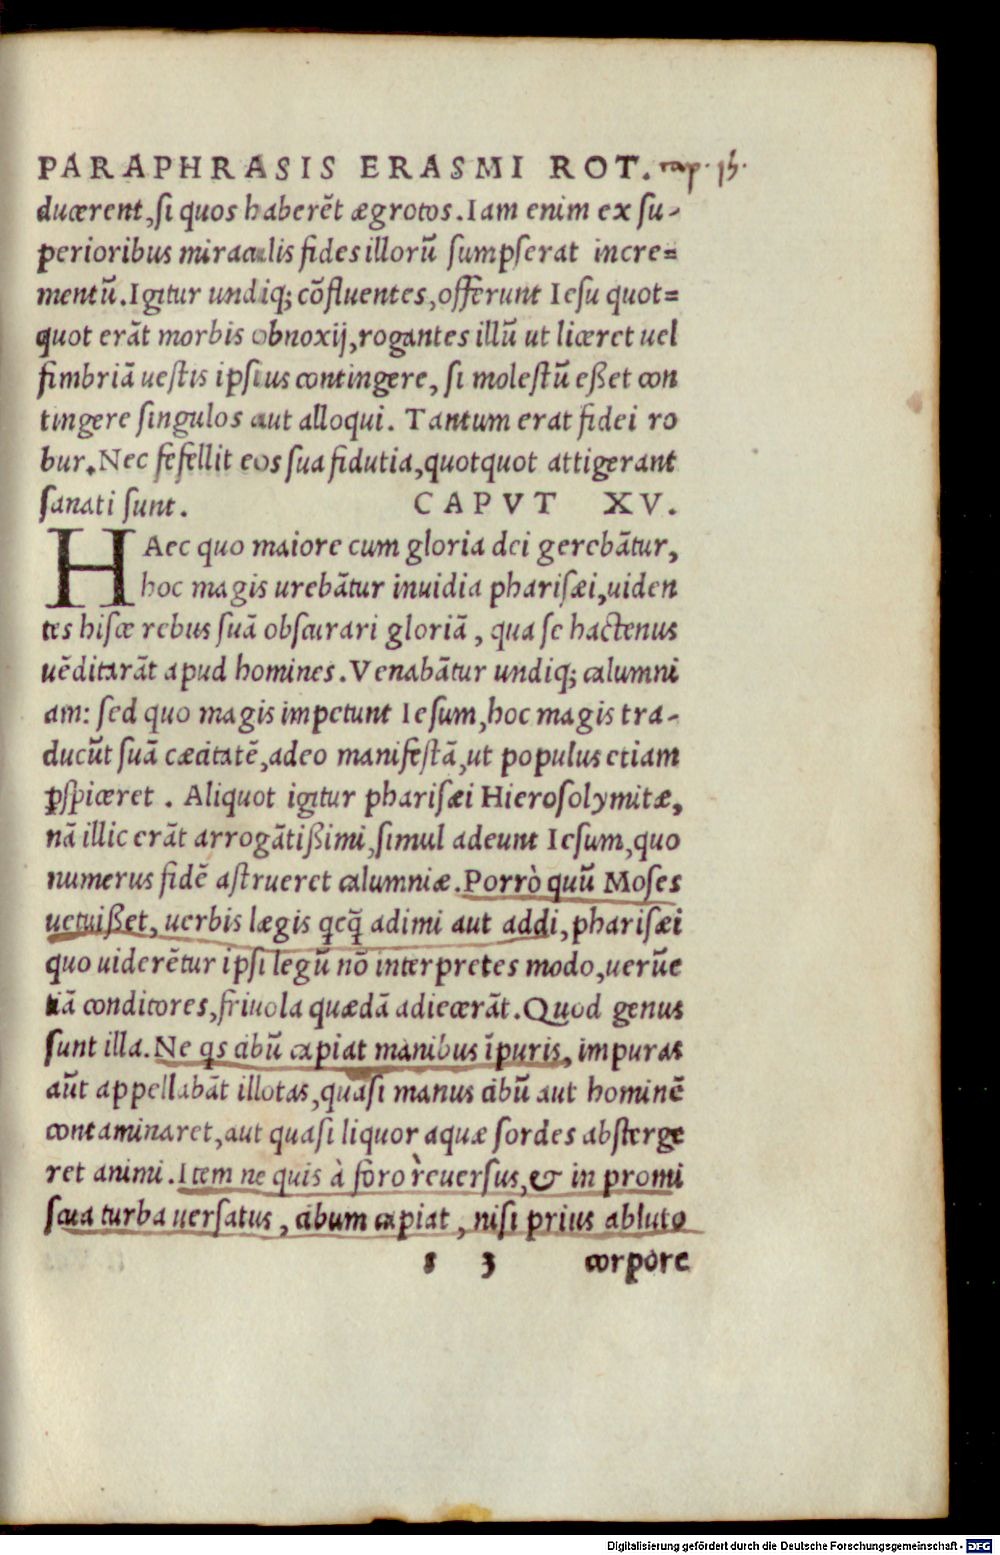 PARAPHRASIS ERASMI ROT. cap. 15.
ducerent, si quos haberẽt ægrotos. Iam enim ex su-
perioribus miraculis fides illorũ sumpserat incre=
mentũ. Igitur undiq; cõfluentes, offerunt Iesu quot=
quot erãt morbis obnoxij, rogantes illũ ut liceret uel
fimbriã uestis ipsius contingere, si molestũ eßet con
tingere singulos aut alloqui. Tantum erat fidei ro
bur. Nec fefellit eos sua fidutia, quotquot attigerant
sanati sunt. CAPVT XV.
HAec quo maiore cum gloria dei gerebãtur,
hoc magis urebãtur inuidia pharisæi, uiden
tes hisce rebus suã obscurari gloriã, qua se hactenus
uẽditarãt apud homines. Venabãtur undiq; calumni
am: sed quo magis impetunt Iesum, hoc magis tra-
ducũt suã cæcitatẽ, adeo manifestã, ut populus etiam
ꝑspiceret. Aliquot igitur pharisæi Hierosolymitæ,
nã illic erãt arrogãtißimi, simul adeunt Iesum, quo
numerus fidẽ astrueret calumniæ. Porrò quũ Moses
uetuißet, uerbis lægis qcq̃ adimi aut addi, pharisæi
quo uiderẽtur ipsi legũ nõ interpretes modo, uerũe
tiã conditores, friuola quædã adiecerãt. Quod genus
sunt illa. Ne qs cibũ capiat manibus ĩpuris, impuras
aũt appellabãt illotas, quasi manus cibũ aut hominẽ
contaminaret, aut quasi liquor aquæ sordes absterge
ret animi. Item ne quis à foro reuersus, & in promi
scua turba uersatus, cibum capiat, nisi prius abluto
s 3 corpore
Digitalisierung gefördert durch die Deutsche Forschungsgemeinschaft - DFG